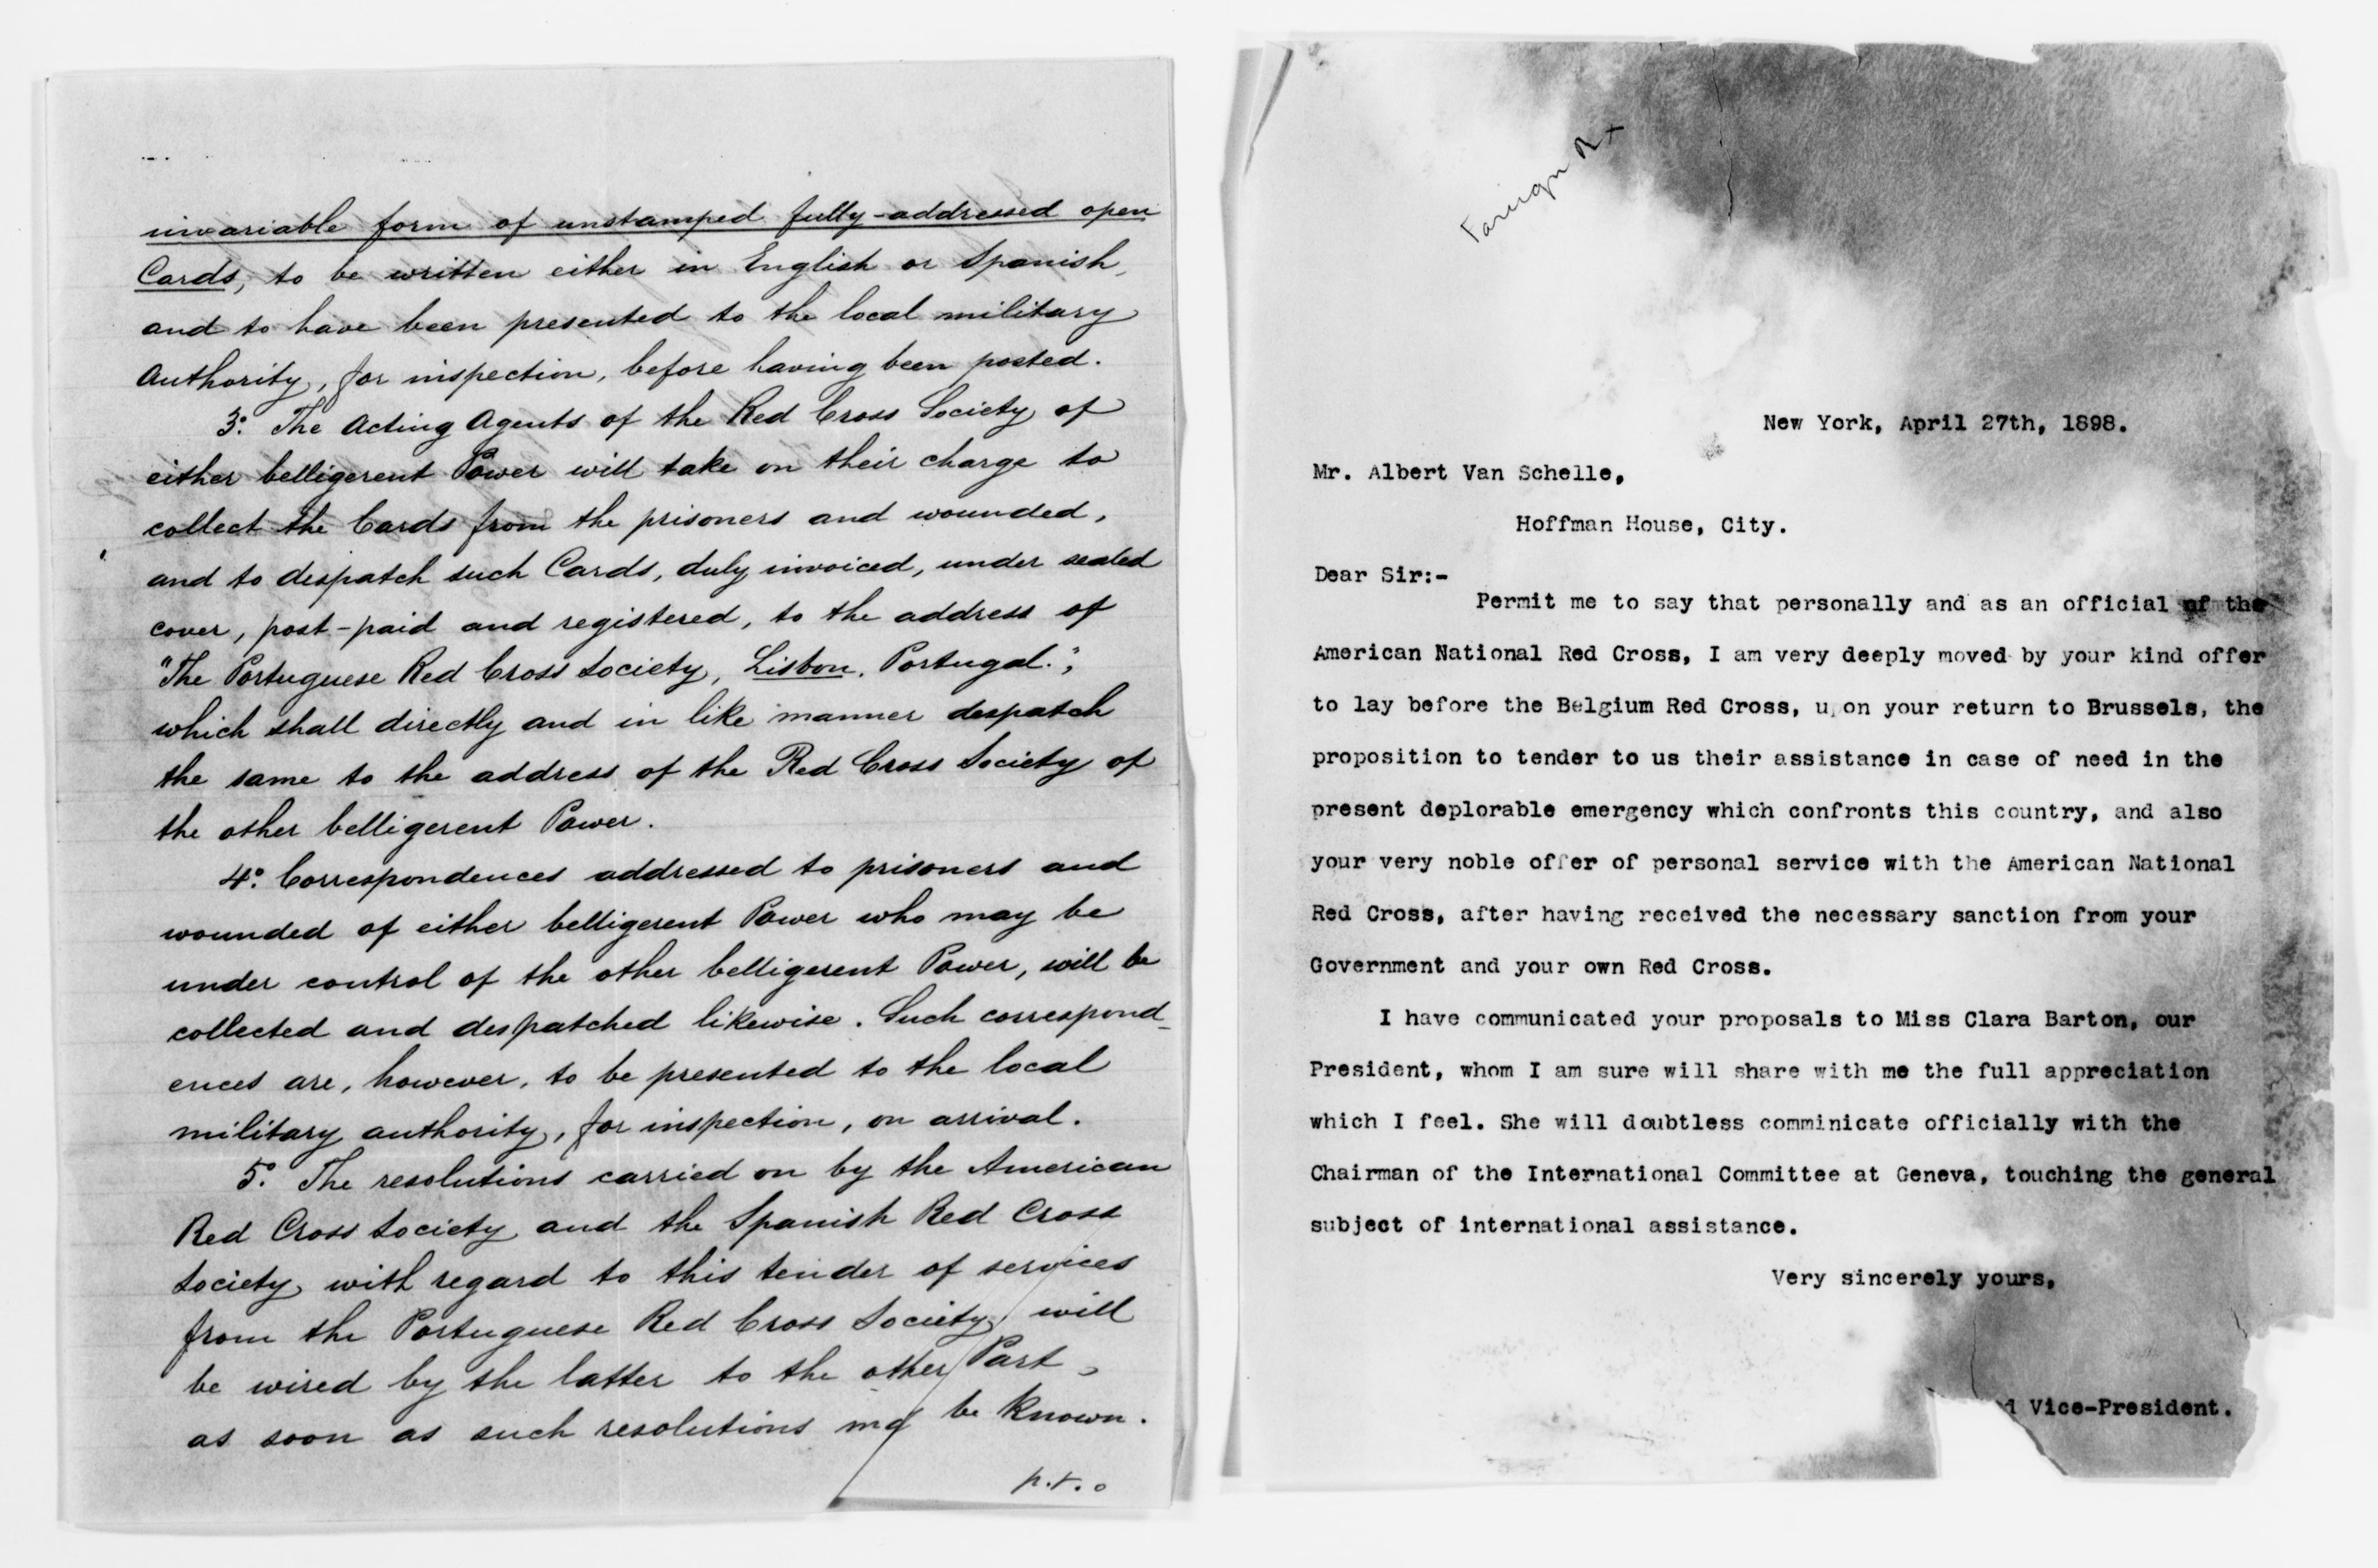 invariable form of unstamped fully-addressed open
Cards, to be written either in English or Spanish,
and to have been presented to the local military
Authority, for inspection, before having been posted.
3º. The Acting Agents of the Red Cross Society of
either belligerent Power will take on their charge to
collect the Cards from the prisoners and wounded,
and to despatch such Cards, duly invoiced, under sealed
cover, post-paid and registered, to the address of
"The Portuguese Red Cross Society, Lisbon, Portugal.";
which shall directly and in like manner despatch
the same to the address of the Red Cross Society of
the other belligerent Power.
4º. Correspondences addressed to prisoners and
wounded of either belligerent Power who may be
under control of the other belligerent Power, will be
collected and despatched likewise. Such correspond-
ences are, however, to be presented to the local
military authority, for inspection, on arrival.
5º. The resolutions carried on by the American
Red Cross Society and the Spanish Red Cross
Society with regard to this tender of services
from the Portuguese Red Cross Society will
be wired by the latter to the other Part
as soon as such resolutions ma be known.
p.t.o
Foreign R+
New York, April 27th, 1898.
Mr. Albert Van Schelle,
Hoffman House, City.
Dear Sir:-
Permit me to say that personally and as an official of the
American National Red Cross, I am very deeply moved by your kind offer
to lay before the Belgium Red Cross, upon your return to Brussels, the
proposition to tender to us their assistance in case of need in the
present deplorable emergency which confronts this country, and also
your very noble offer of personal service with the American National
Red Cross, after having received the necessary sanction from your
Government and your own Red Cross.
I have communicated your proposals to Miss Clara Barton, our
President, whom I am sure will share with me the full appreciation
which I feel. She will doubtless comminicate officially with the
Chairman of the International Committee at Geneva, touching the general
subject of international assistance.
Very sincerely yours,
d Vice-President.